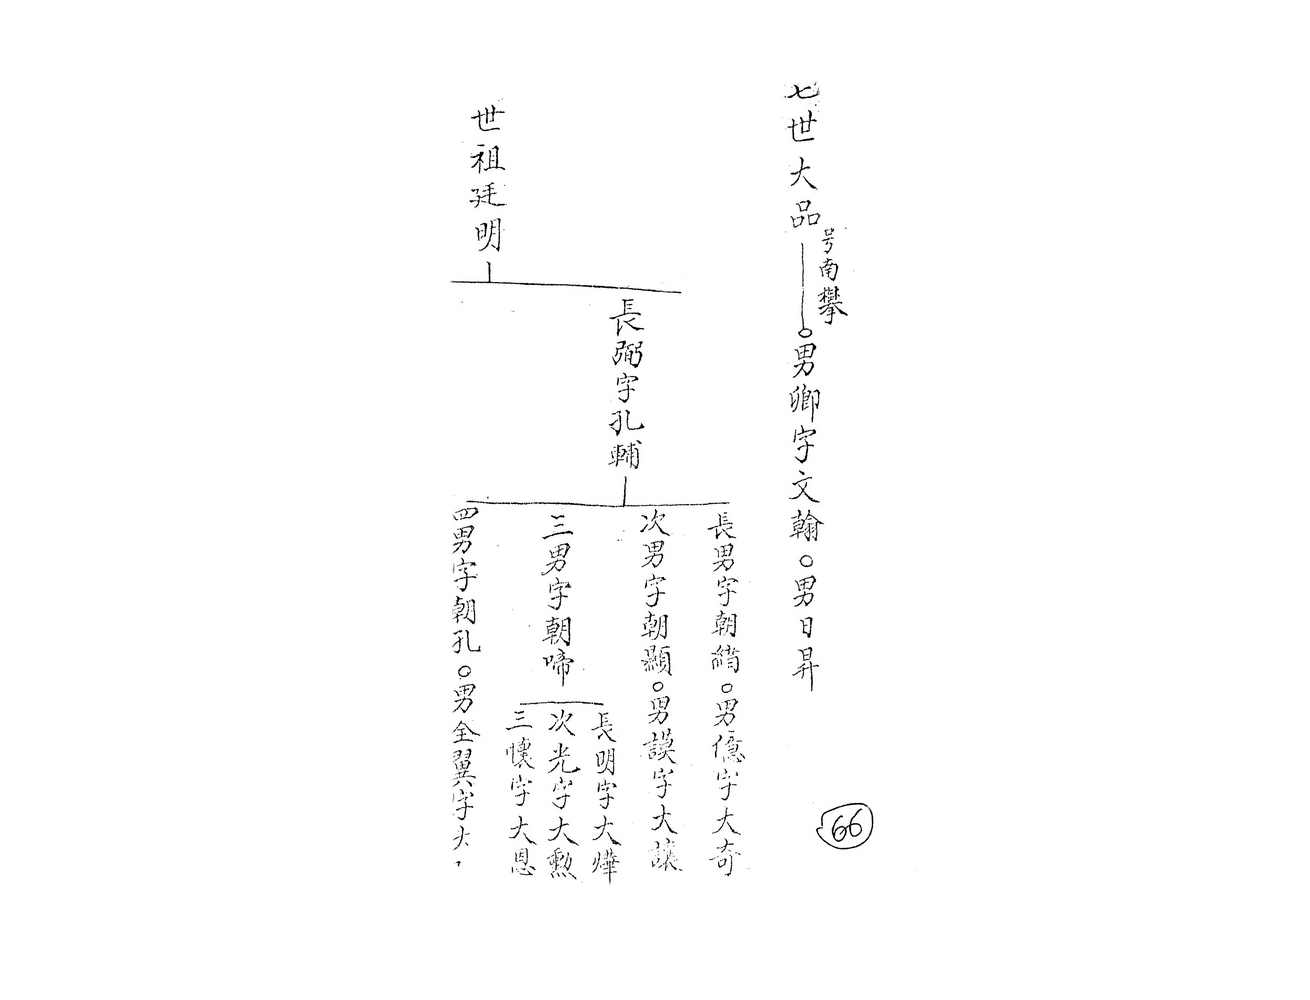 七世大品
号南攀
男卿字文翰
男日昇
世祖廷明
長弼字孔輔
長男字朝綃
男億字大奇
次男字朝顯
男謨字大讓
三男字朝啼
長明字大燁
次光字大勲
三懷字大恩
四男字朝孔
男全翼字大
66